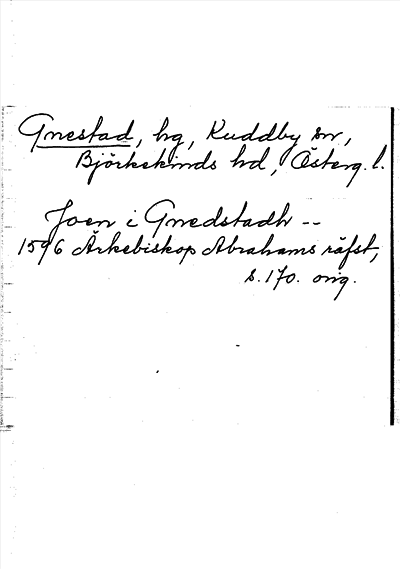 Gnestad, hg, Kuddby sn,
Björkekinds hd, Österg. l.
Joen i Gnedstadh --
1596 Ärkebiskop Abrahams räfst,
s. 170. orig.